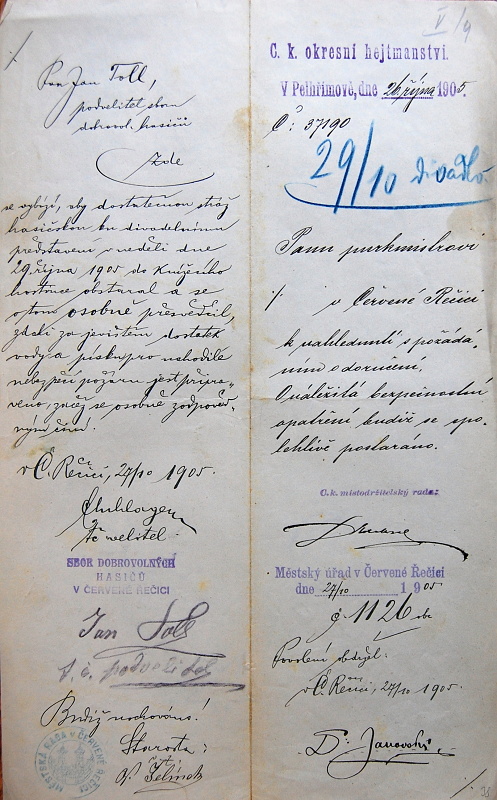 Pan Jan Toll,
podvelitel sboru
dobrovol. hasičů
Zde
se vybízí, aby dostatečnou stráž
hasičskou ku divadelnímu
představení v neděli dne
29. října 1905 do Knížecího
hostince obstaral a se
o tom osobně přesvědčil,
zdali za jevištěm dostatek
vody a písku pro nahodilé
nebezpečí požáru jest připra-
veno, začež se osobně zodpověd-
ným činí.
v Č. Řečici, 27/10 1905.
velitel
SBOR DOBROVOLNÝCH
HASIČŮ
V ČERVENÉ ŘEČICI
Jan Toll
t. č. podvelitel
Budiž uschováno!
Starosta:
MĚSTSKÁ RADA V ČERVENÉ ŘEČICI
V/9
C. k. okresní hejtmanství.
V Pelhřimově, dne 26. října 1905.
Č: 37190
29/10 divadlo
Panu purkmistrovi
v Červené Řečici
k nahlédnutí s požádá-
ním o doručení.
O náležitá bezpečnostní
opatření budiž se spo-
lehlivě postaráno.
C. k. místodržitelský rada:
Městský úřad v Červené Řečici
dne 27/10 1905
č. 1126
Povolení obdržel:
v Č. Řečici, 27/10 1905.
Dr. Janovský